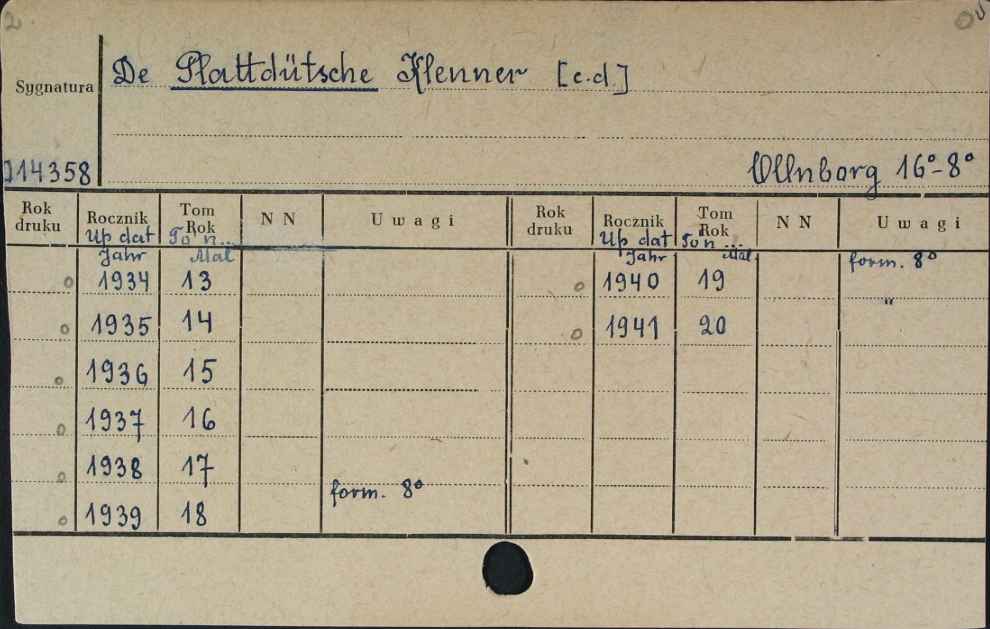 2
De Plattdütsche Klenner [c.d.]
Sygnatura
Ollnborg 16°-8°
J14358
Rok druku Rocznik Tom Rok NN Uwagi Rok druku Rocznik Tom Rok NN Uwagi
Up dat Jahr To'n... Mal Up dat Jahr To'n ... Mal form. 8°
o 1934 13 o 1940 19 "
o 1935 14 o 1941 20
o 1936 15
o 1937 16
o 1938 17
form. 8°
o 1939 18